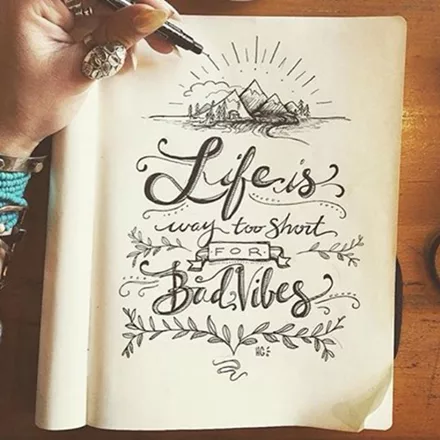 Life is
way too short
FOR
Bad Vibes
HGE